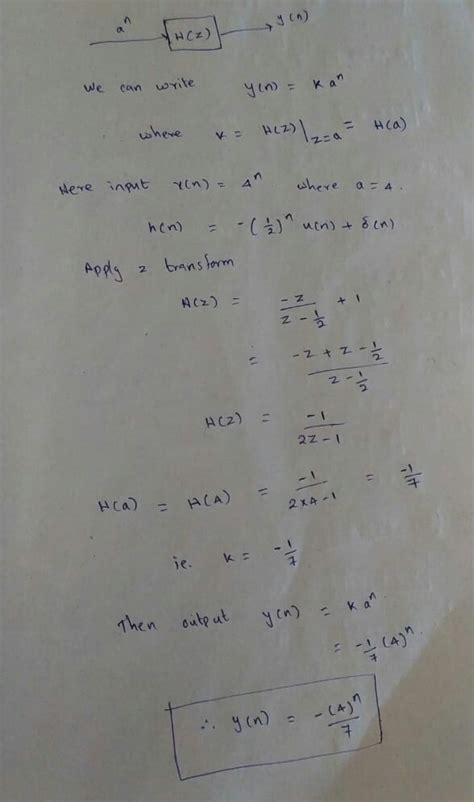 aⁿ H(z) y(n)
We can write y(n) = K aⁿ
where K = H(z)|z=a = H(a)
Here input x(n) = 4ⁿ where a = 4.
h(n) = -(1/2)ⁿ u(n) + δ(n)
Apply z transform
H(z) = -z/(z - 1/2) + 1
= (-z + z - 1/2)/(z - 1/2)
H(z) = -1/(2z-1)
H(a) = H(4) = -1/(2×4-1) = -1/7
ie. K = -1/7
Then output y(n) = K aⁿ.
= -1/7 (4)ⁿ.
∴ y(n) = -(4)ⁿ/7